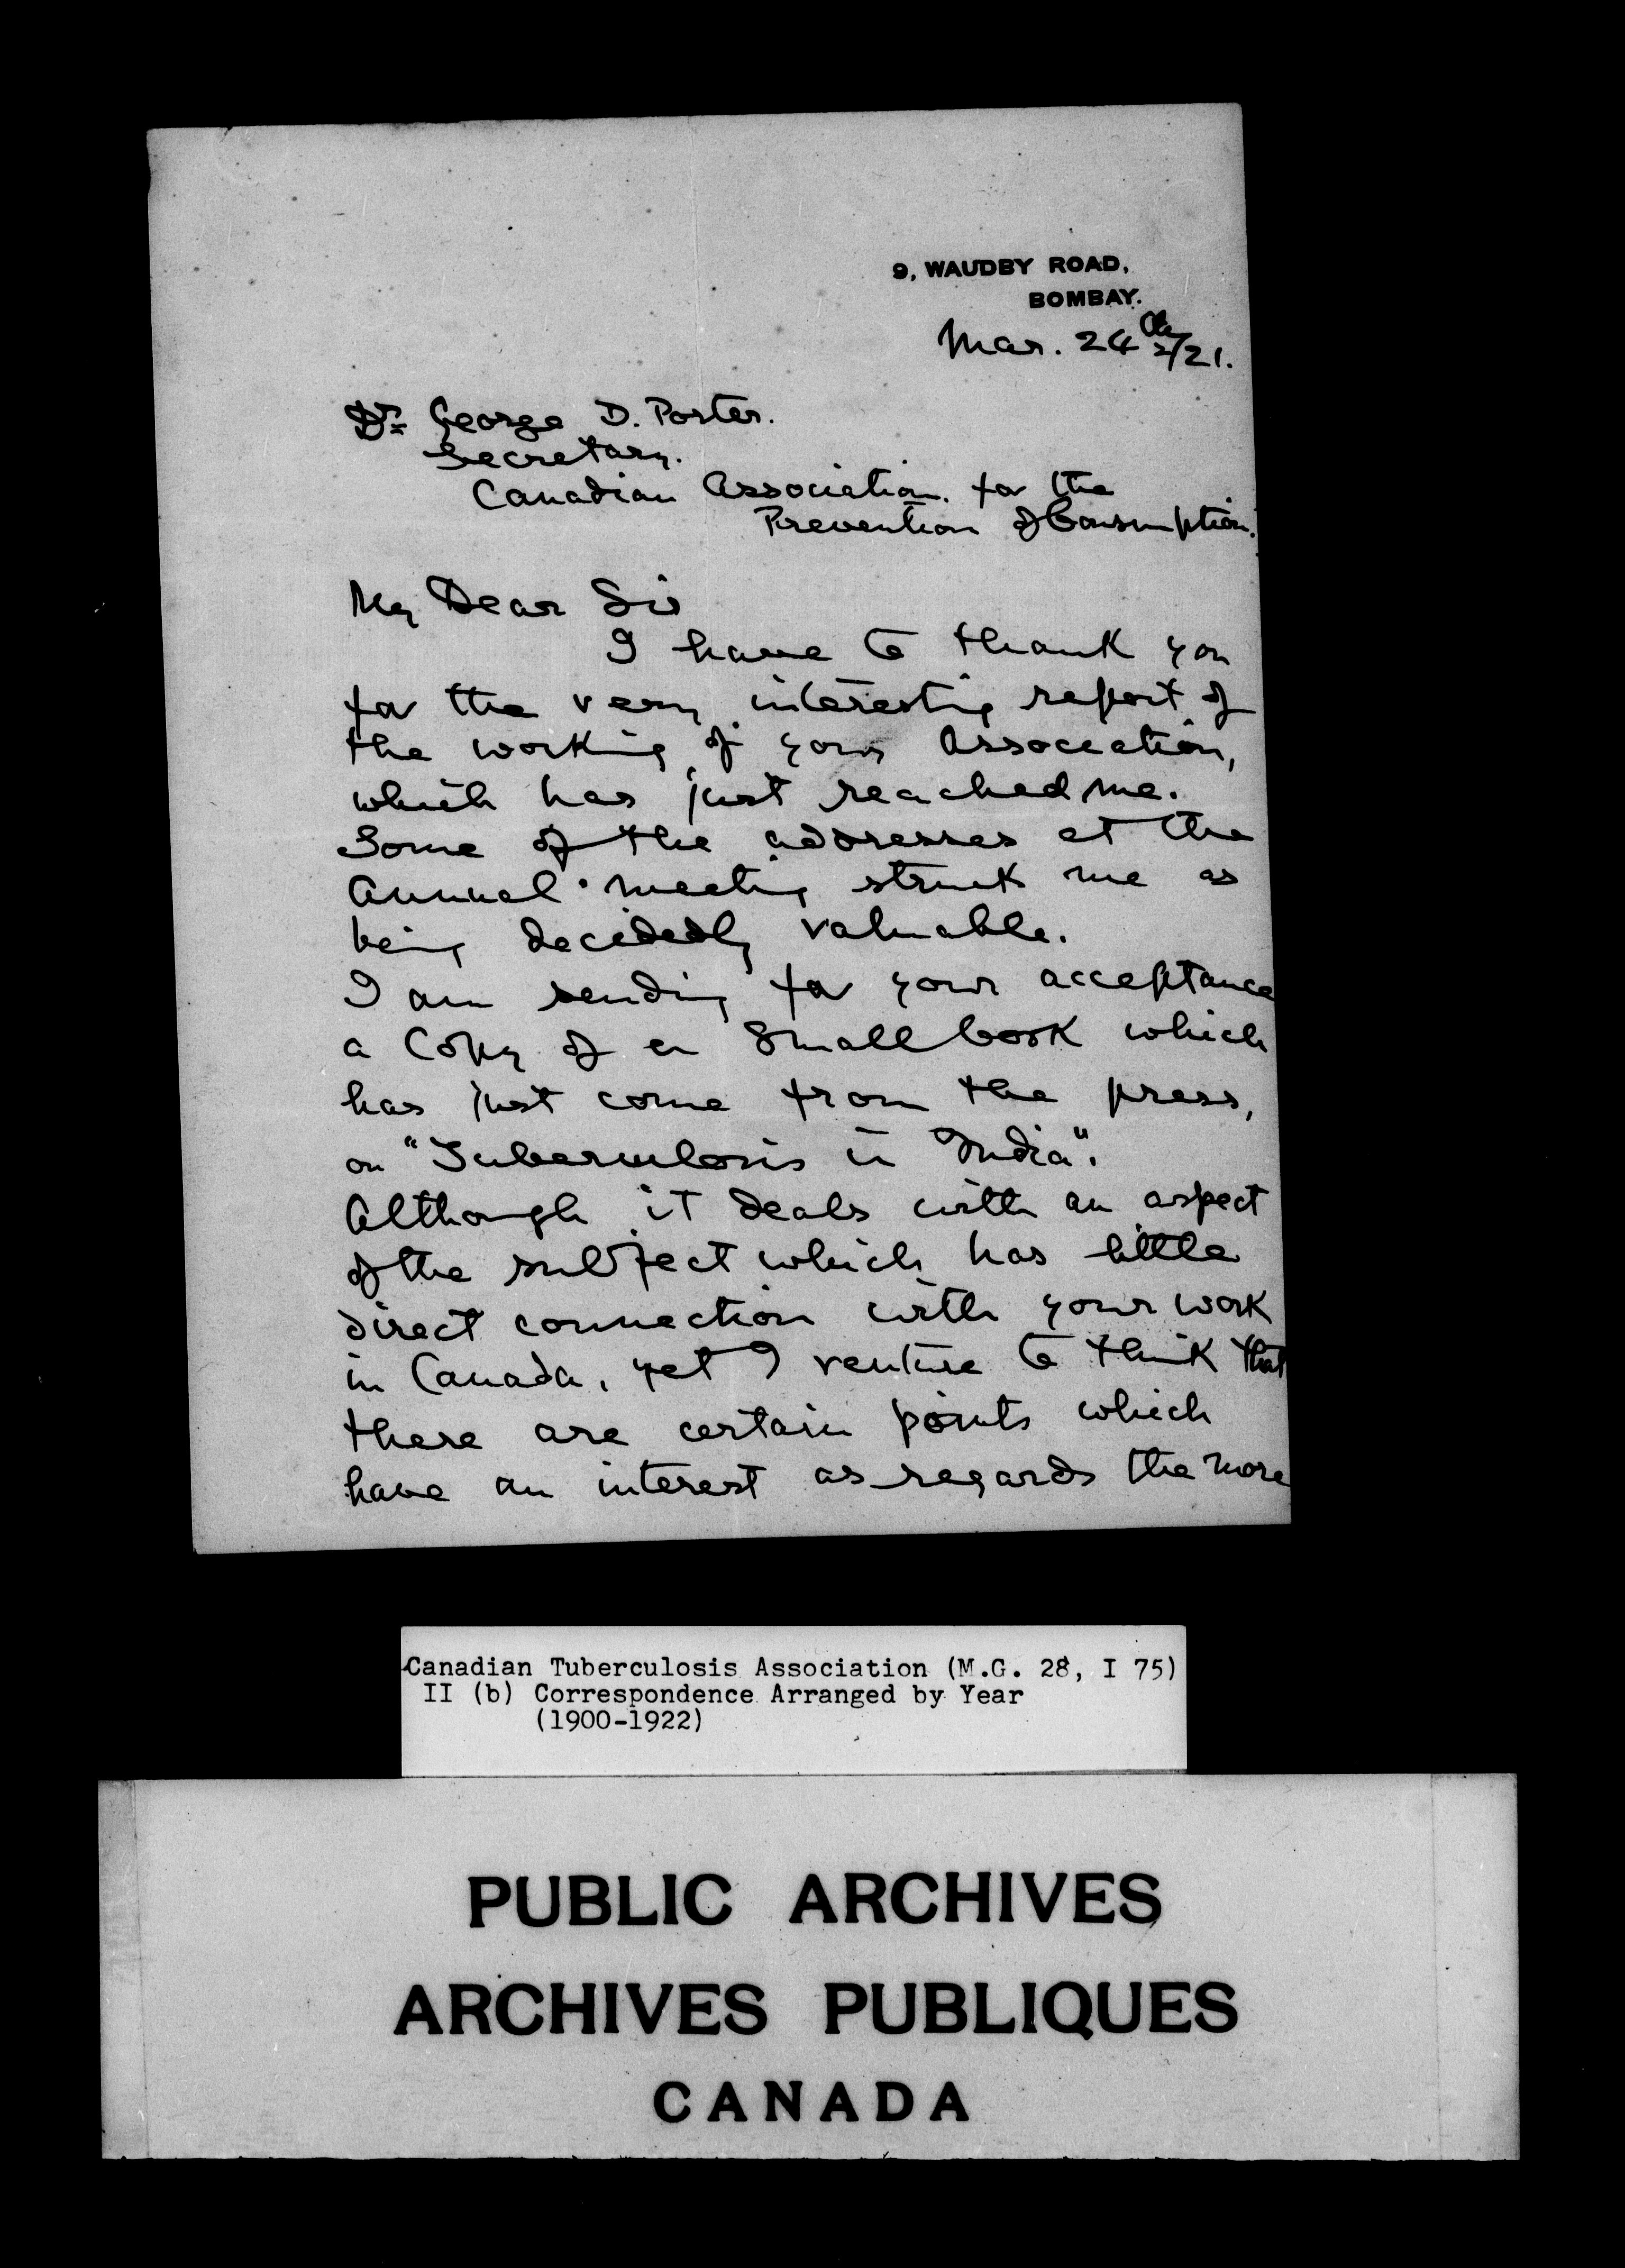 9, WAUDBY ROAD,
BOMBAY.
Mar. 24th/21.
Dr George D. Porter.
Secretary.
Canadian Association. for the
Prevention of Consumption.
My Dear Sir
I have to thank you
for the very interesting report of
the working of your Association,
which has just reached me.
Some of the addresses at the
Annual meeting struck me as
being decidedly valuable.
I am sending for your acceptance
a Copy of a Small book which
has just come from the press,
on "Tuberculosis in India".
Although it deals with an aspect
of the subject which has little
direct connection with your work
in Canada, yet I venture to think that
there are certain points which
have an interest as regards the more
Canadian Tuberculosis Association (M.G. 28, I 75)
II (b) Correspondence Arranged by Year
(1900-1922)
PUBLIC ARCHIVES
ARCHIVES PUBLIQUES
CANADA